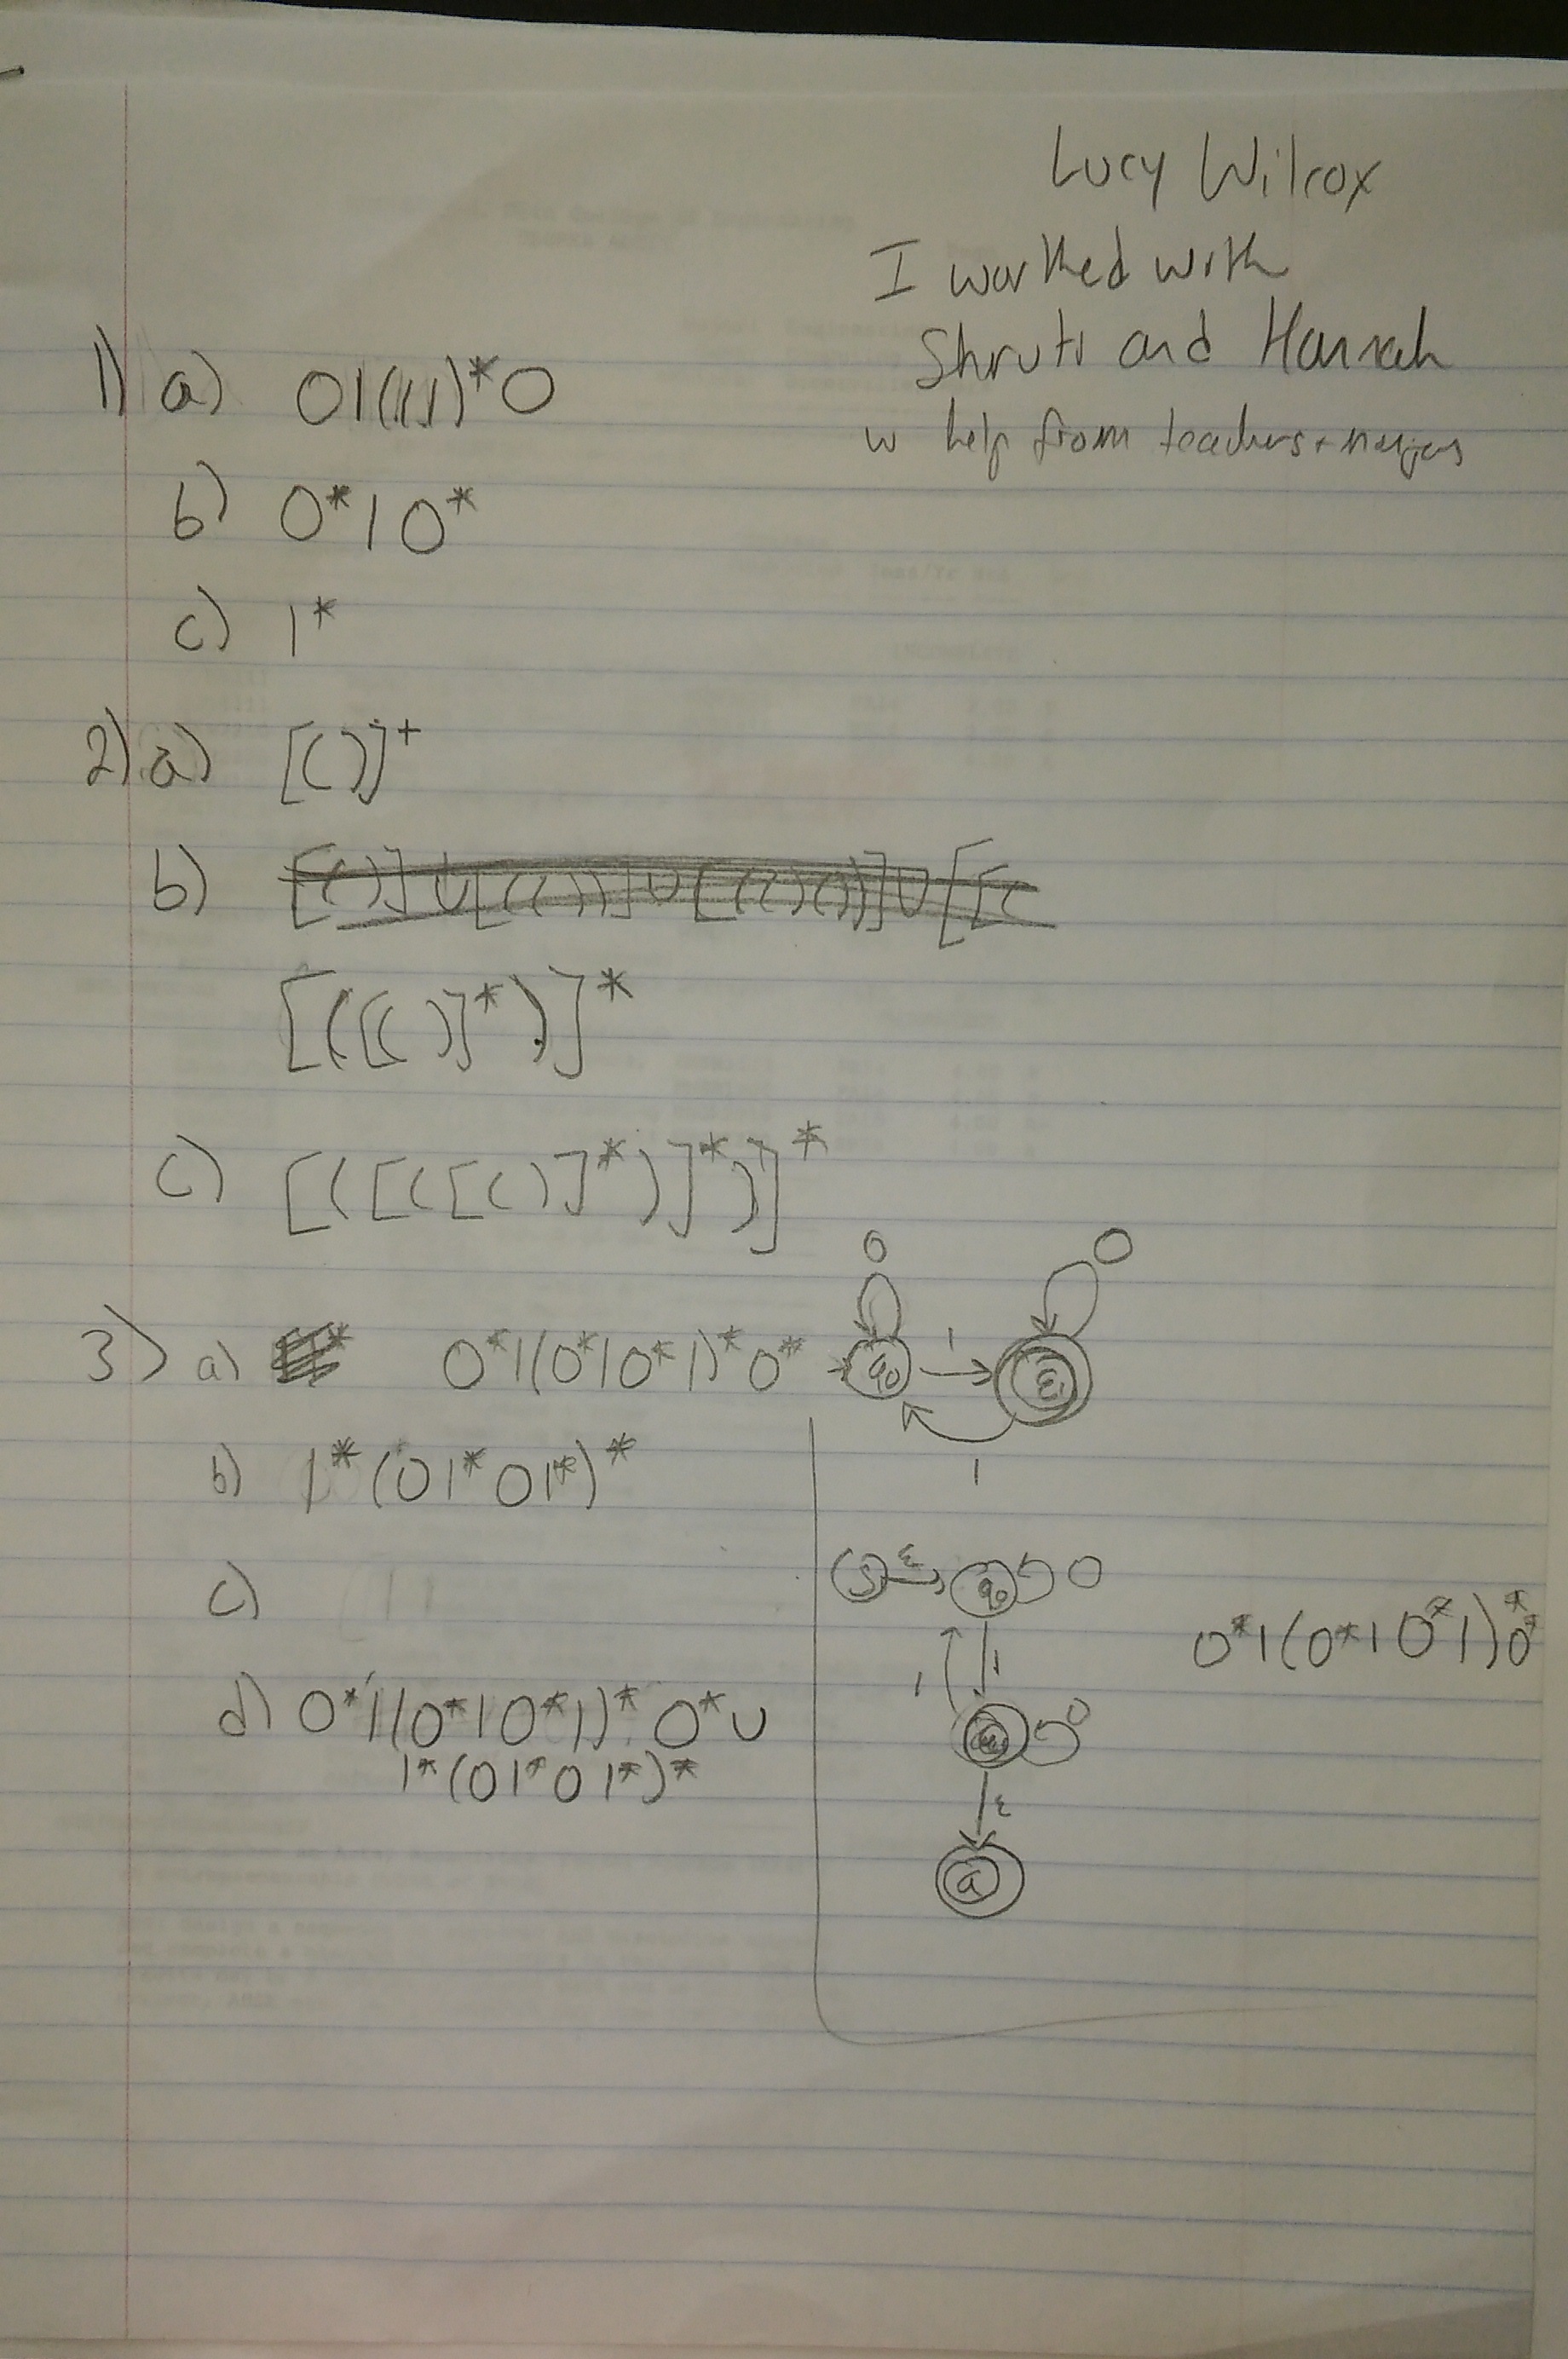 Lucy Wilcox
I worked with
Shruti and Hannah
w help from teachers +
1) a) 01(11)*0
b) 0*10*
c) 1*
2) a) [()]+
b)
[([()]*)]*
c) [([([()]*)]*)]*
3) a) 0*1(0*10*1)*0*
0 0
q0 1
1
b) 1*(01*01*)*
c)
S ε q0 0
1 1
0*1(0*10*1)*0*
d) 0*1(0*10*1)*0* ∪
1*(01*01*)*
0
ε
a